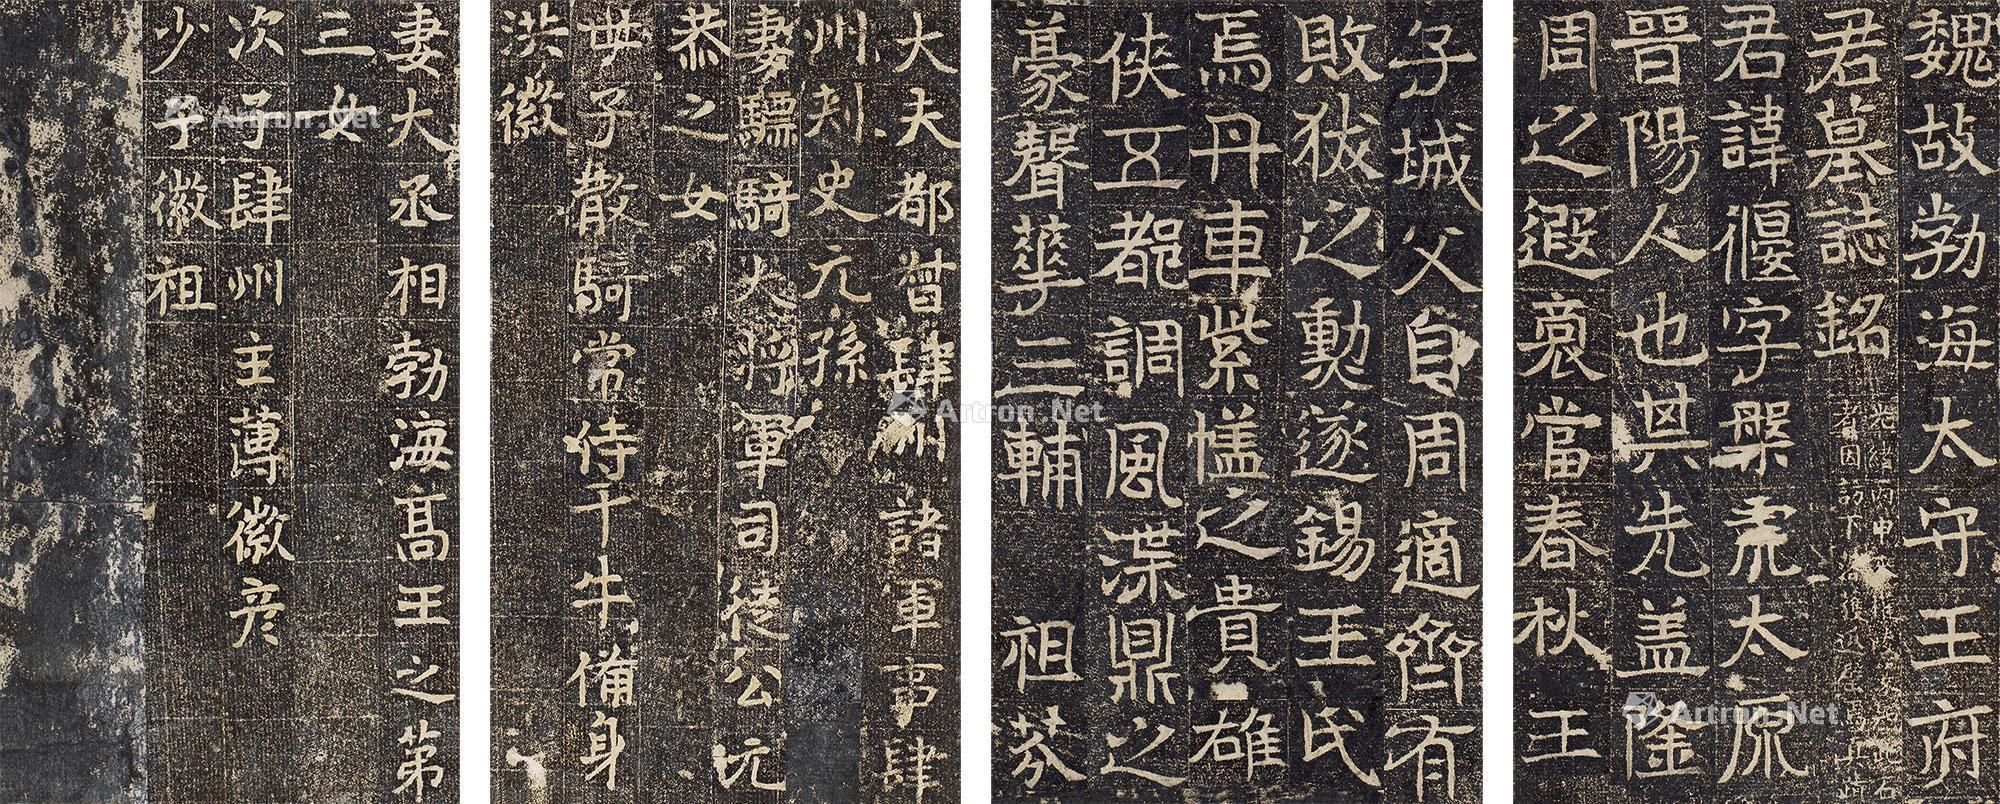 魏故勃海太守王府
君墓誌銘
君諱偃字槃虎太原
晉陽人也其先盖隆
周之遐裔當春秋王
子城父自周適齊有
敗狄之勳遂錫王氏
焉丹車紫幰之貴雄
俠五都調風渫鼎之
豪聲華三輔 祖芬
大夫都督肆州諸軍事肆
州刾史元孫
妻驃騎大將軍司徒公元
恭之女
世子散騎常侍千牛備身
洪徽
妻大丞相勃海髙王之第
三女
次子肆州主薄徽彦
少子徽祖
Artron.Net
Artron.Net
Artron.Net